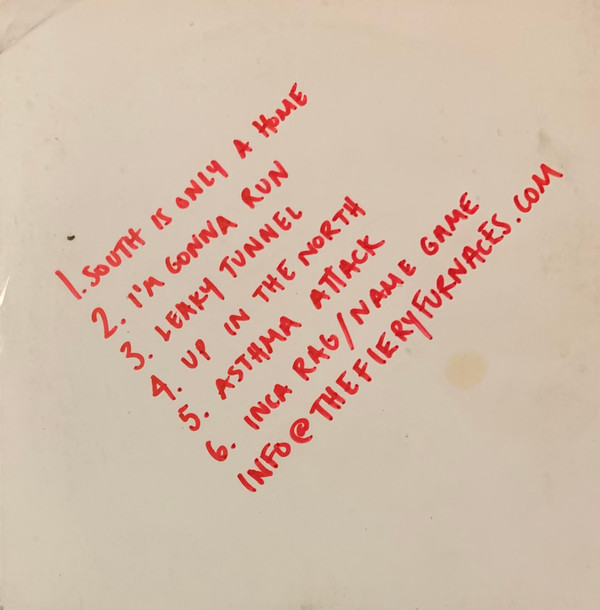 1. SOUTH IS ONLY A HOME
2. I'M GONNA RUN
3. LEAKY TUNNEL
4. UP IN THE NORTH
5. ASTHMA ATTACK
6. INCA RAG/NAME GAME
INFO@THEFIERYFURNACES.COM